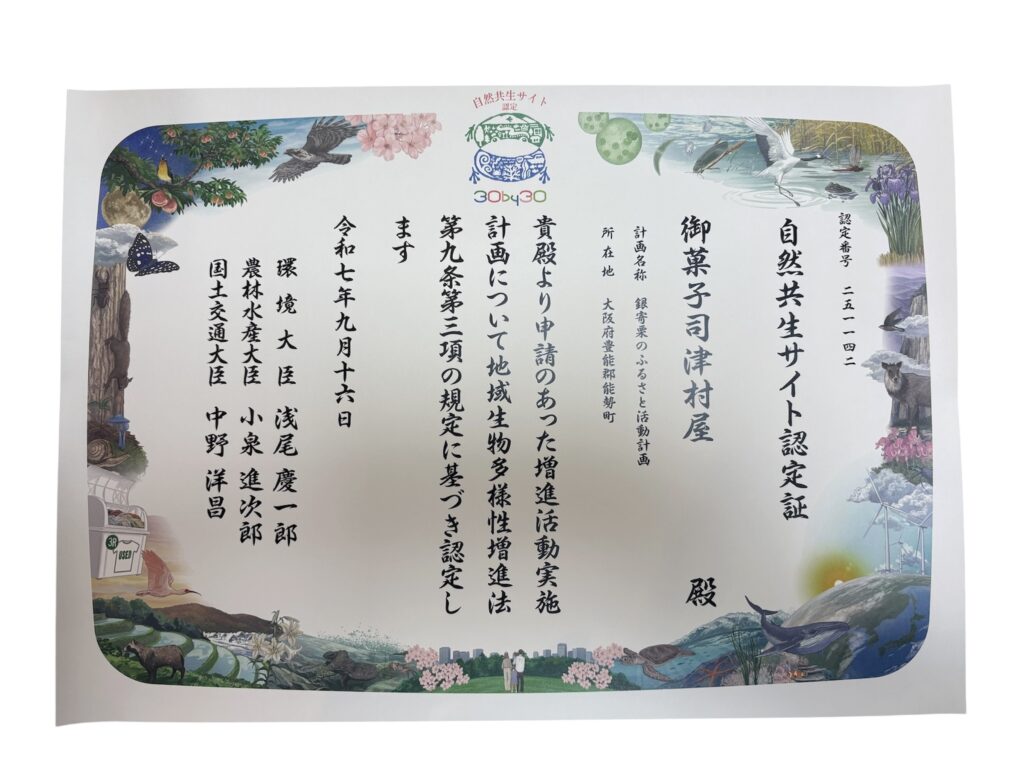 自然共生サイト
認定
30by30
認定番号 二五一一四二
自然共生サイト認定証
御菓子司津村屋 殿
計画名称 銀寄栗のふるさと活動計画
所在地 大阪府豊能郡能勢町
貴殿より申請のあった増進活動実施
計画について地域生物多様性増進法
第九条第三項の規定に基づき認定し
ます
令和七年九月十六日
環境大臣 浅尾慶一郎
農林水産大臣 小泉進次郎
国土交通大臣 中野洋昌
3R
USED